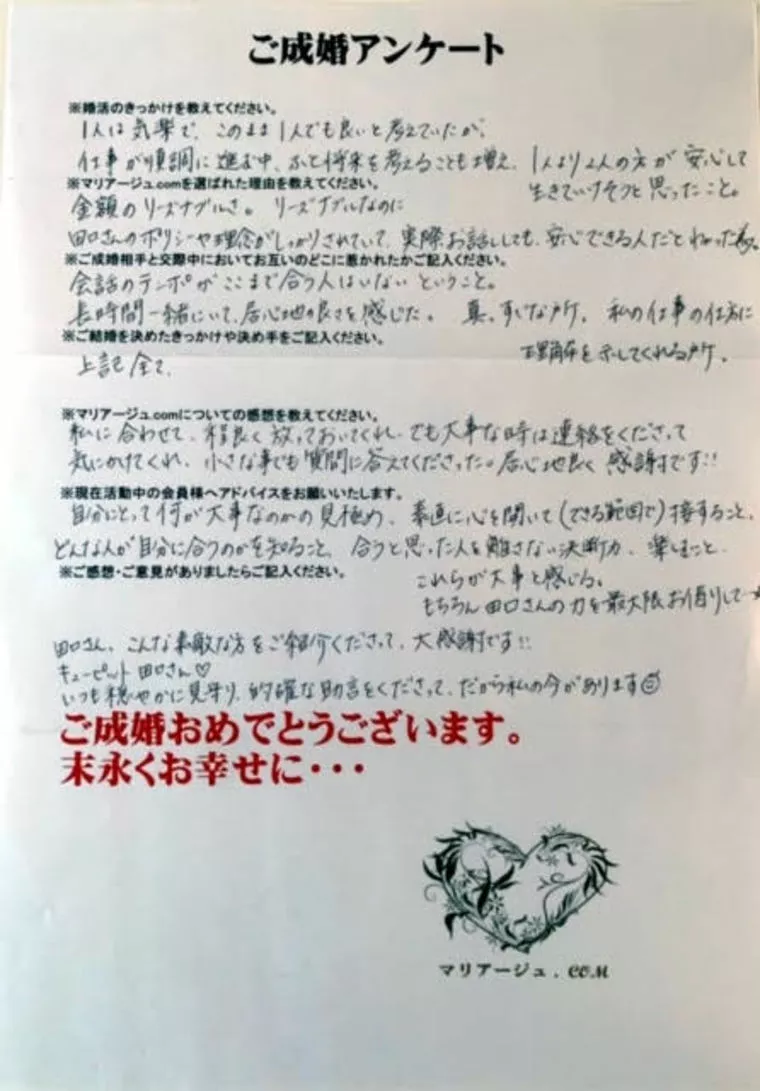 ご成婚アンケート
※婚活のきっかけを教えてください。
1人は気楽で、このまま1人でも良いと考えていたが、
仕事が順調に進む中、ふと将来を考えることも増え、1人より2人の方が安心して
生きていけそうと思ったこと。
※マリアージュ.comを選ばれた理由を教えてください。
金額のリーズナブルさ。リーズナブルなのに
田口さんのポリシーや理念がしっかりされていて、実際お話しても、安心できる人だとわかった為。
※ご成婚相手と交際中においてお互いのどこに惹かれたかご記入ください。
会話のテンポがここまで合う人はいないということ。
長時間一緒にいて、居心地の良さを感じた。真っすぐな所、私の仕事の仕方に
理解を示してくれる所。
※ご結婚を決めたきっかけや決め手をご記入ください。
上記全て。
※マリアージュ.comについての感想を教えてください。
私に合わせて、程良く放っておいてくれ、でも大事な時は連絡をくださって
気にかけてくれ、小さな事でも質問に答えてくださった。居心地良く感謝です!!
※現在活動中の会員様へアドバイスをお願いいたします。
自分にとって何が大事なのかの見極め、素直に心を開いて(できる範囲で)接すること、
どんな人が自分に合うのかを知ること、合うと思った人を離さない決断力、楽しむこと
これらが大事と感じる。
もちろん田口さんの力を最大限お借りして
※ご感想・ご意見がありましたらご記入ください。
田口さん、こんな素敵な方をご紹介くださって、大感謝です!!
キューピット田口さん♡
いつも穏やかに見守り、的確な助言をくださって、だから私の今があります☺
ご成婚おめでとうございます。
末永くお幸せに・・・
マリアージュ.COM